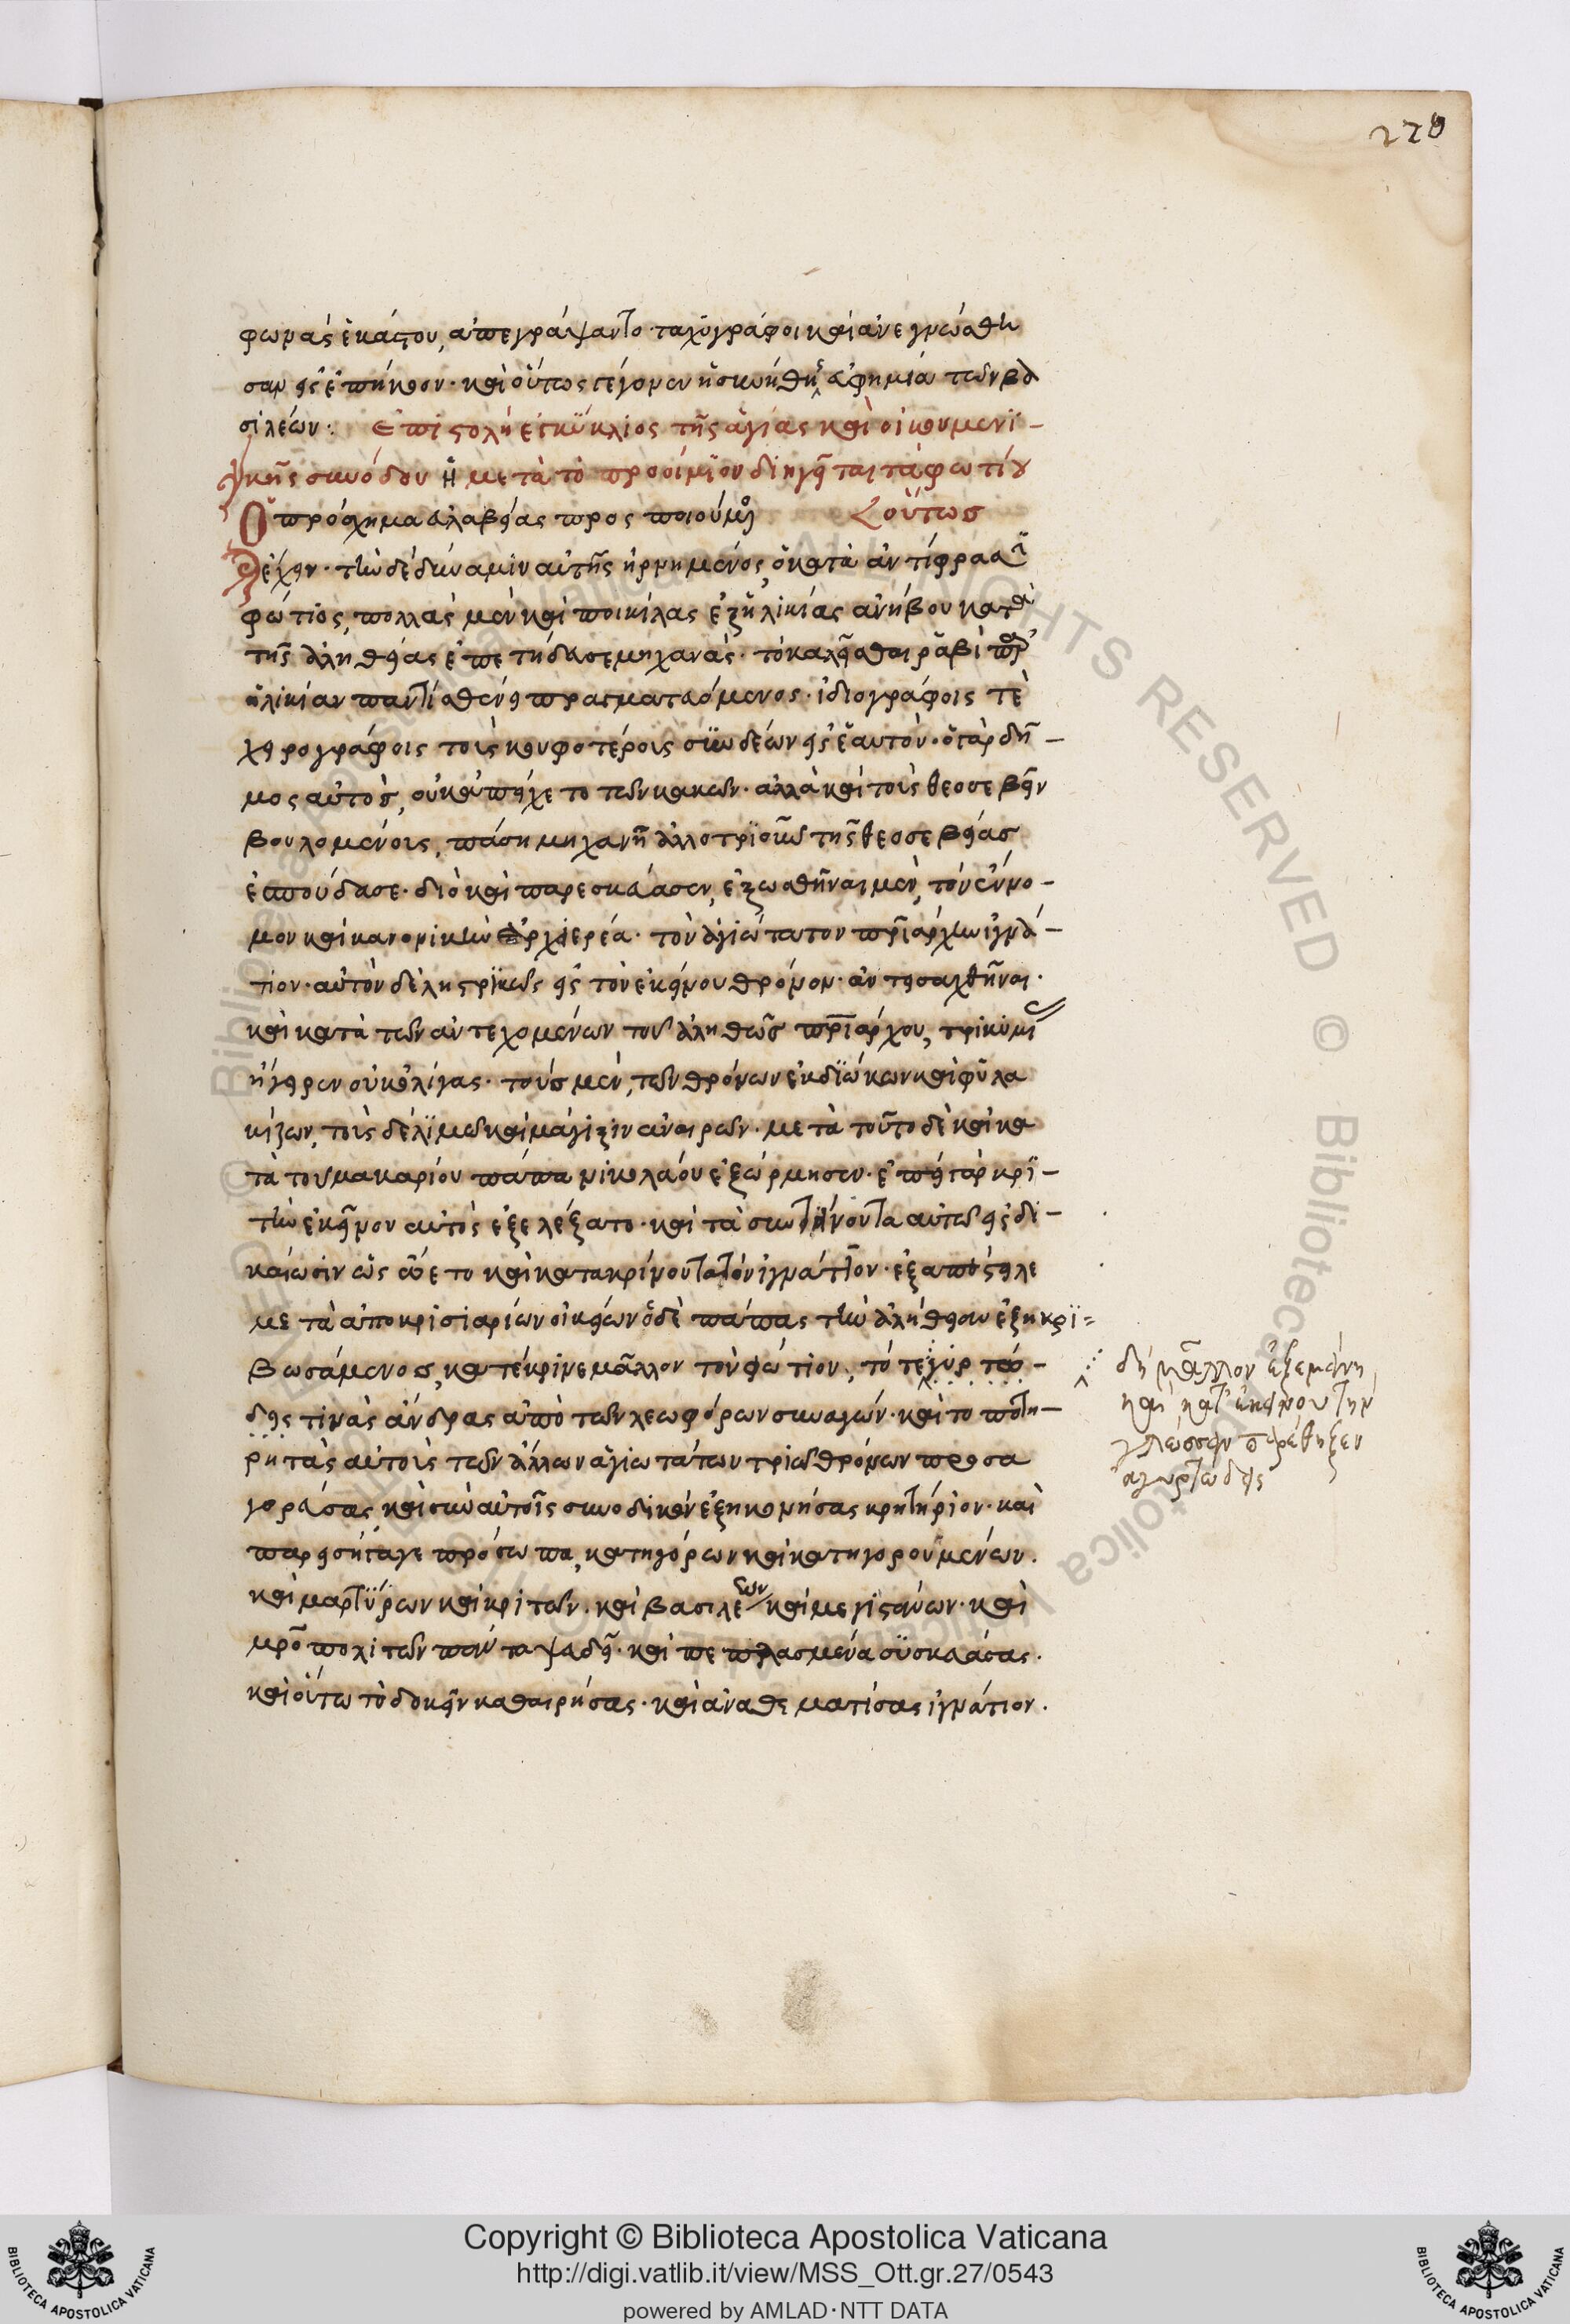 228
φωνὰς ἑκάστου, ἀπεγράψαντο ταχυγράφοι καὶ ἀνεγνώσθη
σαν εἰς ἐπήκοον· καὶ οὕτως γέγονεν ἡ συνήθης εὐφημία τῶν βα
σιλέων: Ἐπιστολὴ ἐγκύκλιος τῆς ἁγίας καὶ οἰκουμενι-
κῆς συνόδου ἣ μετὰ τὸ προοίμιον διηγεῖται τὰ φωτίου
Ὁ πρόσχημα εὐλαβείας προς ποιούμενος οὕτως
ἔχειν· τὴν δὲ δύναμιν αὐτῆς ἠρνημένος, ὁ κατὰ ἀντίφρασιν
φώτιος, πολλὰς μὲν καὶ ποικίλας ἐξ ἡλικίας ἀνήβου κατὰ
τῆς ἀληθείας ἐπετήδευσε μηχανάς· τὸ καλεῖσθαι ῥαβὶ παρ
ἡλικίαν παντὶ σθένει πραγματευόμενος· ἰδιογράφοις τὲ
χειρογράφοις τοὺς κουφοτέροις συνδέων εἰς ἑαυτόν· ὁ γὰρ δῆ-
μος αὐτὸς, οὐκ ἀπείχετο τῶν κακῶν· ἀλλὰ καὶ τοὺς θεοσεβεῖν
βουλομένοις, πάσῃ μηχανῇ ἀλλοτριοῦν τῆς θεοσεβείας
ἐσπούδασε· διὸ καὶ παρεσκεύασεν, ἐξωσθῆναι μὲν, τὸν ἔννο-
μον καὶ κανονικὴν ἀρχιερέα· τὸν ἁγιώτατον πριάρχην ἰγνά-
τιον· αὐτὸν δὲ λῃστρικῶς εἰς τὸν ἐκείνου θρόνον· ἀντεισαχθῆναι·
καὶ κατὰ τῶν ἀντεχομένων τοῦ ἀληθῶς πριάρχου, τρικυμίας
ἤγειρεν οὐκ ὀλίγας· τοὺς μὲν, τῶν θρόνων ἐκδιώκων καὶ φυλα
κίζων, τοὺς δὲ λιμῷ καὶ μάστιξιν ἀναιρῶν· μετὰ τοῦτο δὲ καὶ κα
τὰ τοῦ μακαρίου πάπα νικολάου ἐξώρμησεν· ἐπεὶ γὰρ κρι-
τὴν ἐκεῖνον αὐτὸς ἐξελέξατο· καὶ τὰ συντείνοντα αὐτῷ εἰς δι-
καίωσιν ὡς ᾤετο καὶ κατακρίνοντα τὸν ἰγνάτιον· ἐξαπέστειλε
μετὰ ἀποκρισιαρίων οἰκείων ὁ δὲ πάπας τὴν ἀλήθειαν ἐξηκρι=
βωσάμενος, κατέκρινε μᾶλλον τὸν φώτιον, τότε γυρ τώ-
δεις τινὰς ἄνδρας ἀπὸ τῶν λεωφόρων συναγών· καὶ τοποτη-
ρητὰς αὐτοὺς τῶν ἄλλων ἁγιωτάτων τριῶν θρόνων προσα
γορεύσας, καὶ σὺν αὐτοῖς συνοδικὸν ἐξηκονήσας κρητήριον· καὶ
παρεισήγαγε πρόσωπα, κατηγόρων καὶ κατηγορουμένων.
καὶ μαρτύρων καὶ κριτῶν. καὶ βασιλέων καὶ μεγιστάνων· καὶ
μροπολιτῶν πάντα ψευδῆ· καὶ πεπλασμένα συσκευάσας·
καὶ οὕτω τὸ δοκεῖν καθαιρήσας· καὶ ἀναθεματίσας ἰγνάτιον.
δὴ μᾶλλον ἐξεμάνη
καὶ κατ᾽ ἐκείνου τὴν
γλῶσσαν παρέθηξεν
ἀγυρτώδεις
Copyright © Biblioteca Apostolica Vaticana
http://digi.vatlib.it/view/MSS_Ott.gr.27/0543
powered by AMLAD·NTT DATA